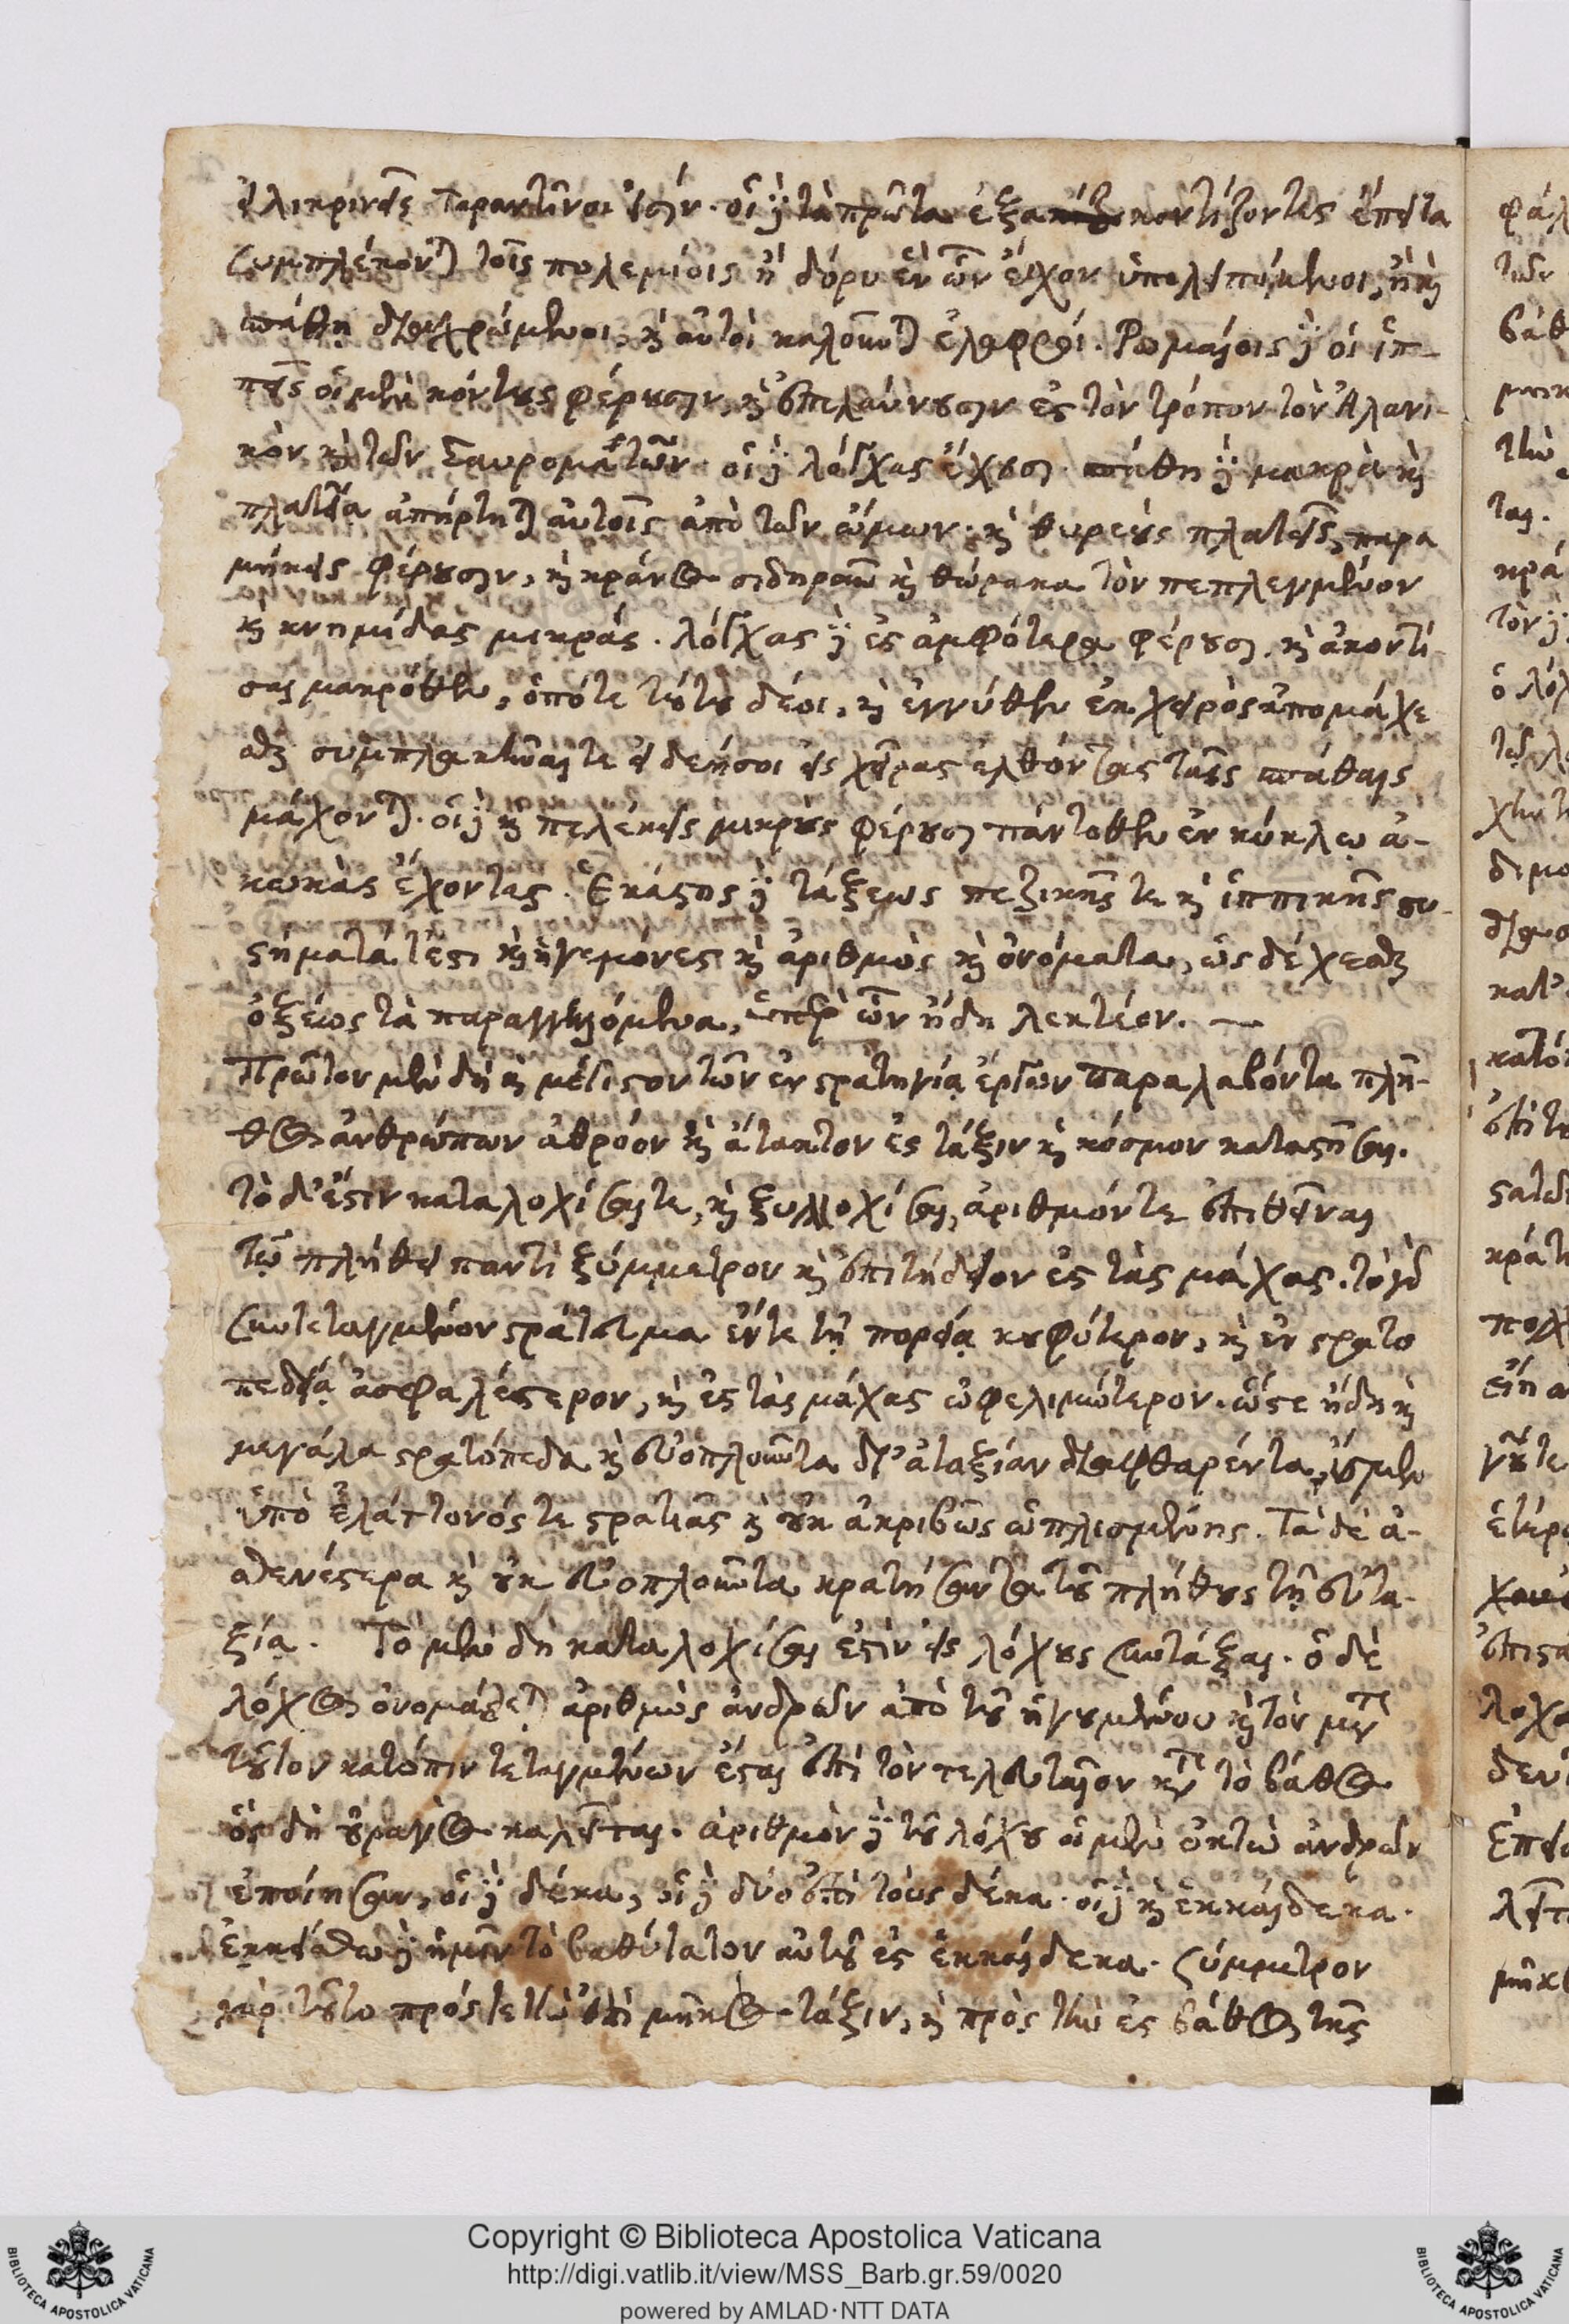 εἰλικρινεῖς Ταραντῖνοι εἰσίν. οἱ δὲ τὰ πρῶτα ἐξακοντίζοντες ἔπειτα
συμπλέκονται τοῖς πολεμίοις ἢ δόρυ ἓν ὧν εἶχον ὑπολειπόμενοι, ἢ καὶ
σπάθῃ διαχρώμενοι, καὶ αὐτοὶ καλοῦνται ἐλαφροί. Ῥωμαίοις δὲ οἱ ἱπ-
πεῖς οἱ μὲν κόντους φέρουσιν, καὶ ἐπελαύνουσιν ἐς τὸν τρόπον τὸν Ἀλανι-
κὸν καὶ τῶν Σαυροματῶν. οἱ δὲ λόγχας ἔχουσι. σπάθη δὲ μακρὰ καὶ
πλατεῖα ἀπήρτηται αὐτοῖς ἀπὸ τῶν ὤμων. καὶ θυρεοὺς πλατεῖς παρα
μήκεις φέρουσιν, καὶ κράνος σιδηροῦν καὶ θώρακα τὸν πεπλεγμένον
καὶ κνημῖδας μικράς. λόγχας δὲ ἐς ἀμφότερα φέρουσι, καὶ ἀκοντί-
σαι μακρόθεν, ὁπότε τούτου δέοι, καὶ ἐγγύθεν ἐκ χειρὸς ἀπομάχε
σθαι συμπλακῆναί τε εἰ δεήσοι εἰς χεῖρας ἐλθόντας ταῖς σπάθαις
μάχονται. οἱ δὲ καὶ πελέκεις μικροὺς φέρουσι πάντοθεν ἐν κύκλῳ ἀ-
κωκὰς ἔχοντας. Ἑκάστης δὲ τάξεως πεζικῆς τε καὶ ἱππικῆς συ-
στήματά τέ ἐστι καὶ ἡγεμόνες καὶ ἀριθμὸς καὶ ὀνόματα, ὡς δέχεσθαι
ὀξέως τὰ παραγγελλόμενα, ὑπὲρ ὧν ἤδη λεκτέον.
Πρῶτον μὲν δὴ καὶ μέγιστον τῶν ἐν στρατηγίᾳ ἔργων παραλαβόντα πλῆ-
θος ἀνθρώπων ἀθρόον καὶ ἄτακτον ἐς τάξιν καὶ κόσμον καταστῆσαι.
τὸ δ' ἔστιν καταλοχίσαι τε, καὶ ξυλλοχίσαι, ἀριθμόν τε ἐπιθεῖναι
τῷ πλήθει παντὶ ξύμμετρον καὶ ἐπιτήδειον ἐς τὰς μάχας. τὸ γὰρ
συντεταγμένον στράτευμα ἔν τε τῇ πορείᾳ κουφότερον, καὶ ἐν στρατο
πεδείᾳ ἀσφαλέστερον, καὶ ἐς τὰς μάχας ὠφελιμώτερον. ὥστε ἤδη καὶ
μεγάλα στρατόπεδα καὶ εὐοπλοῦντα δι' ἀταξίαν διαφθαρέντα
ὑπὸ ἐλάττονός τε στρατιᾶς καὶ οὐκ ἀκριβῶς ὡπλισμένης. Τὰ δὲ ἀ-
σθενέστερα καὶ οὐκ εὐοπλοῦντα κρατήσαντα τοῦ πλήθους τῇ εὐτα-
ξίᾳ. Τὸ μὲν δὴ καταλοχίσαι ἐστὶν εἰς λόχους συντάξαι. ὁ δὲ
λόχος ὀνομάζεται ἀριθμὸς ἀνδρῶν ἀπὸ τοῦ ἡγουμένου καὶ τὸν μετὰ
τοῦτον κατόπιν τεταγμένων ἔσται ἐπὶ τὸν τελευταῖον κατὰ τὸ βάθος
ὃς δὴ οὐραγὸς καλεῖται. ἀριθμὸν δὲ τοῦ λόχου οἱ μὲν ὀκτὼ ἀνδρῶν
ἐποίησαν, οἱ δὲ δέκα, οἱ δὲ δύο ἐπὶ τοὺς δέκα. οἱ δὲ καὶ ἑκκαίδεκα.
ἐκκείσθω δὲ ἡμῖν τὸ βαθύτατον αὐτοῦ ἐς ἑκκαίδεκα. ξύμμετρον
γὰρ τοῦτο πρός τε τὴν ἐπὶ μῆκος τάξιν, καὶ πρὸς τὴν ἐς βάθος τῆς
Copyright © Biblioteca Apostolica Vaticana
http://digi.vatlib.it/view/MSS_Barb.gr.59/0020
powered by AMLAD·NTT DATA
BIBLIOTECA APOSTOLICA VATICANA
BIBLIOTECA APOSTOLICA VATICANA